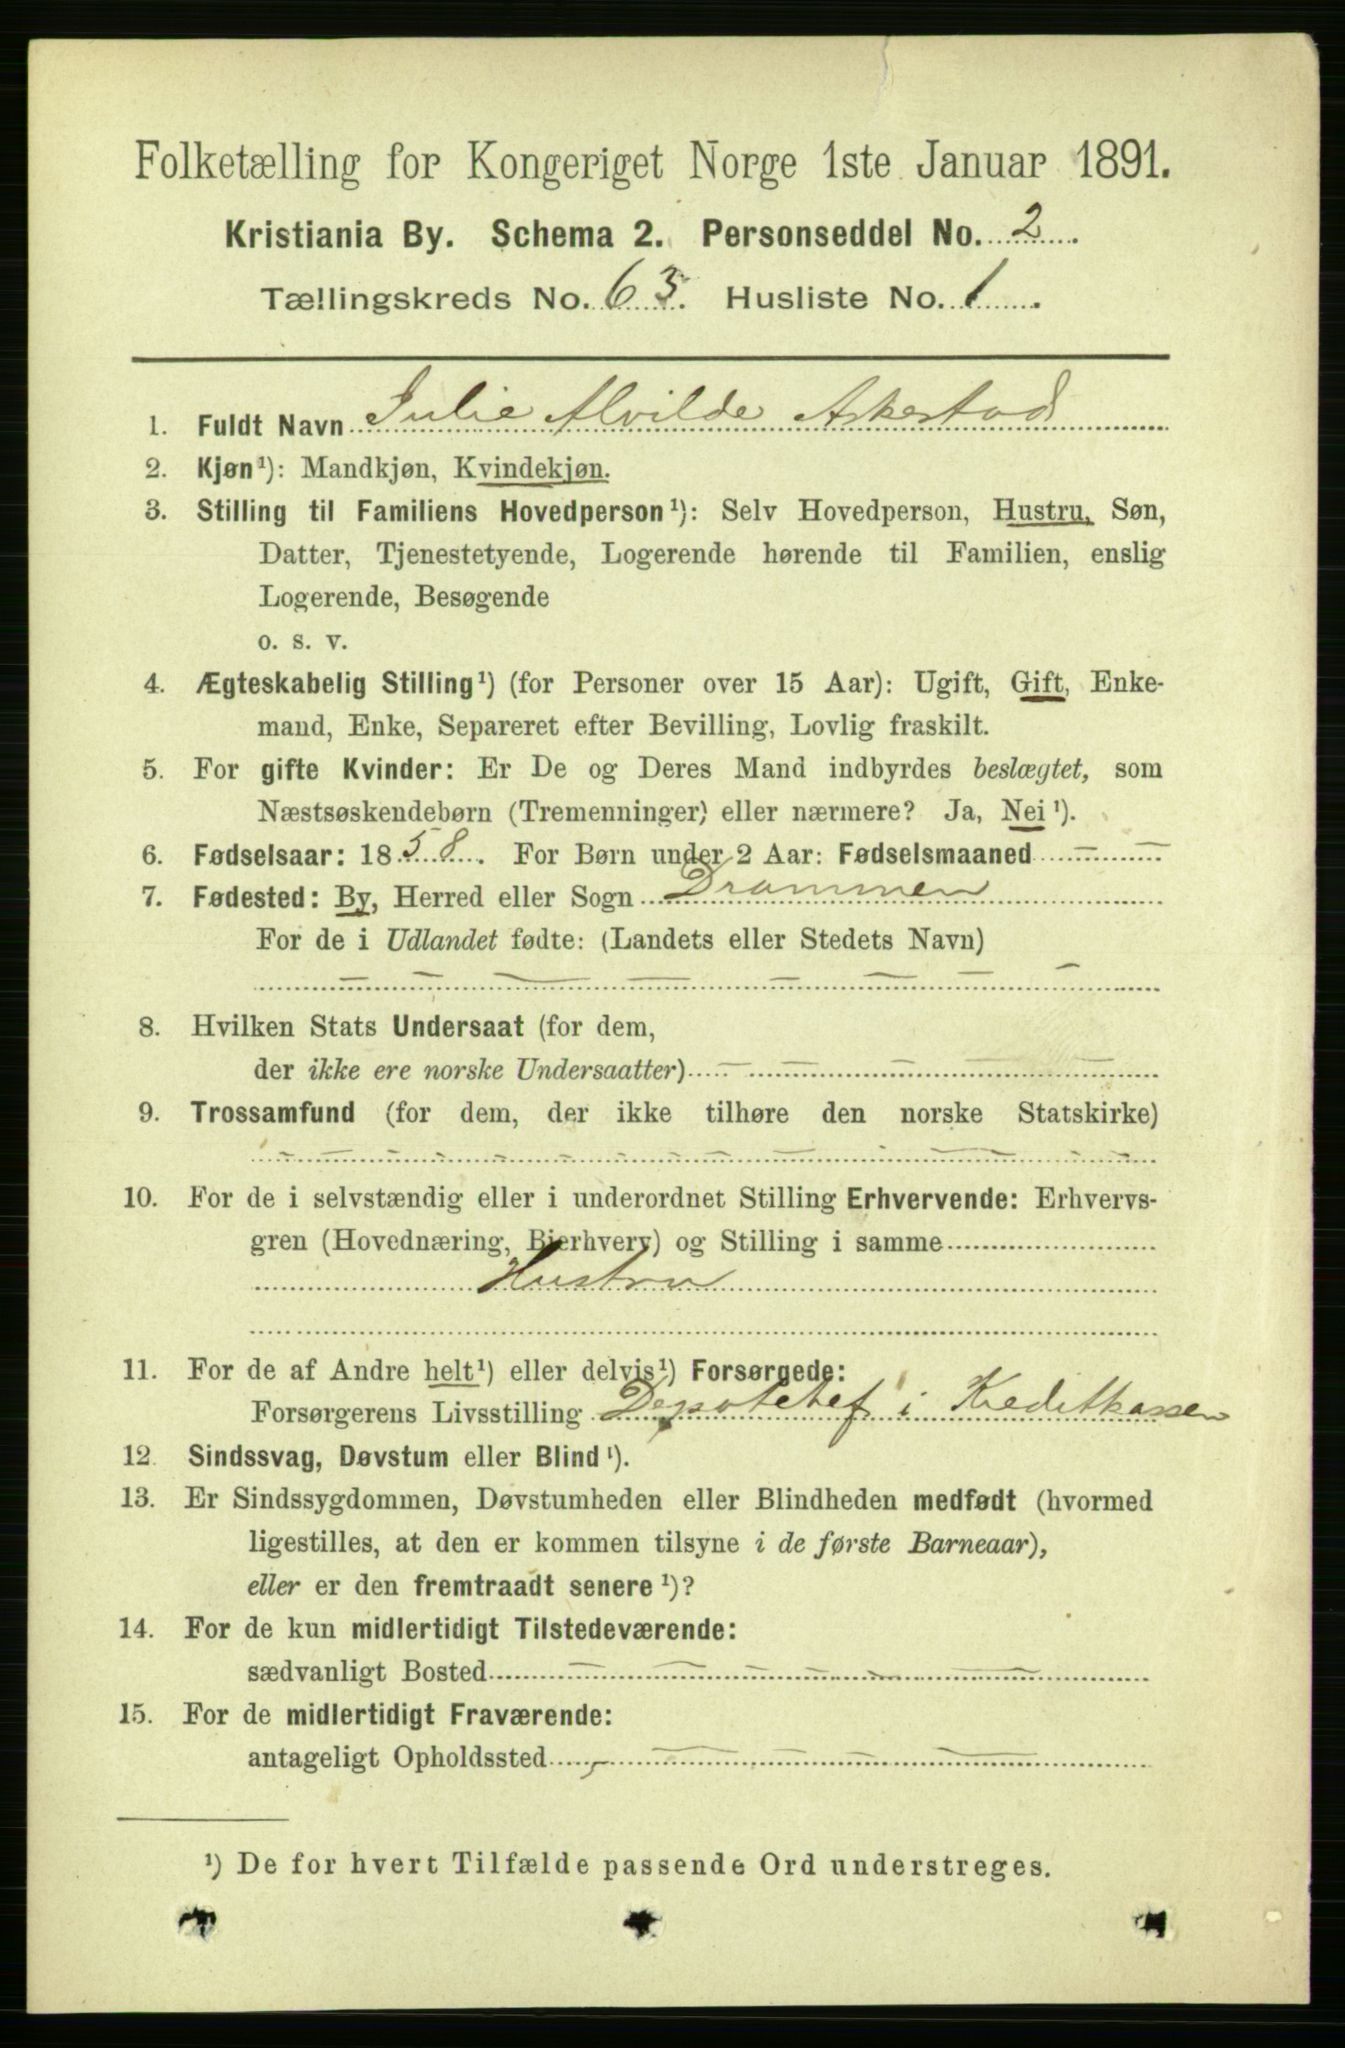 Folketælling for Kongeriget Norge 1ste Januar 1891.
Kristiania By. Schema 2. Personseddel No. 2.
Tællingskreds No. 63. Husliste No. 1.
1. Fuldt Navn Julie Alvilde Askestad
2. Kjøn¹): Mandkjøn, Kvindekjøn.
3. Stilling til Familiens Hovedperson¹): Selv Hovedperson, Hustru, Søn,
Datter, Tjenestetyende, Logerende hørende til Familien, enslig
Logerende, Besøgende
o. s. v.
4. Ægteskabelig Stilling¹) (for Personer over 15 Aar): Ugift, Gift, Enke-
mand, Enke, Separeret efter Bevilling, Lovlig fraskilt.
5. For gifte Kvinder: Er De og Deres Mand indbyrdes beslægtet, som
Næstsøskendebørn (Tremenninger) eller nærmere? Ja, Nei¹).
6. Fødselsaar: 1858. For Børn under 2 Aar: Fødselsmaaned
7. Fødested: By, Herred eller Sogn Drammen
For de i Udlandet fødte: (Landets eller Stedets Navn)
8. Hvilken Stats Undersaat (for dem,
der ikke ere norske Undersaatter)
9. Trossamfund (for dem, der ikke tilhøre den norske Statskirke)
10. For de i selvstændig eller i underordnet Stilling Erhvervende: Erhvervs-
gren (Hovednæring, Bierhverv) og Stilling i samme
Hustru
11. For de af Andre helt¹) eller delvis¹) Forsørgede:
Forsørgerens Livsstilling Depotchef i Kreditkassen
12. Sindssvag, Døvstum eller Blind¹).
13. Er Sindssygdommen, Døvstumheden eller Blindheden medfødt (hvormed
ligestilles, at den er kommen tilsyne i de første Barneaar),
eller er den fremtraadt senere¹)?
14. For de kun midlertidigt Tilstedeværende:
sædvanligt Bosted
15. For de midlertidigt Fraværende:
antageligt Opholdssted
¹) De for hvert Tilfælde passende Ord understreges.